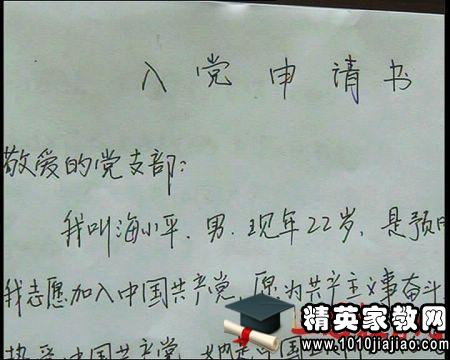 入党申请书
敬爱的党支部:
我叫海小平、男、现年22岁,是预
我志愿加入中国共产党,愿为共产主义事奋斗
热爱中国共产党
精英家教网
www.1010jiajiao.com